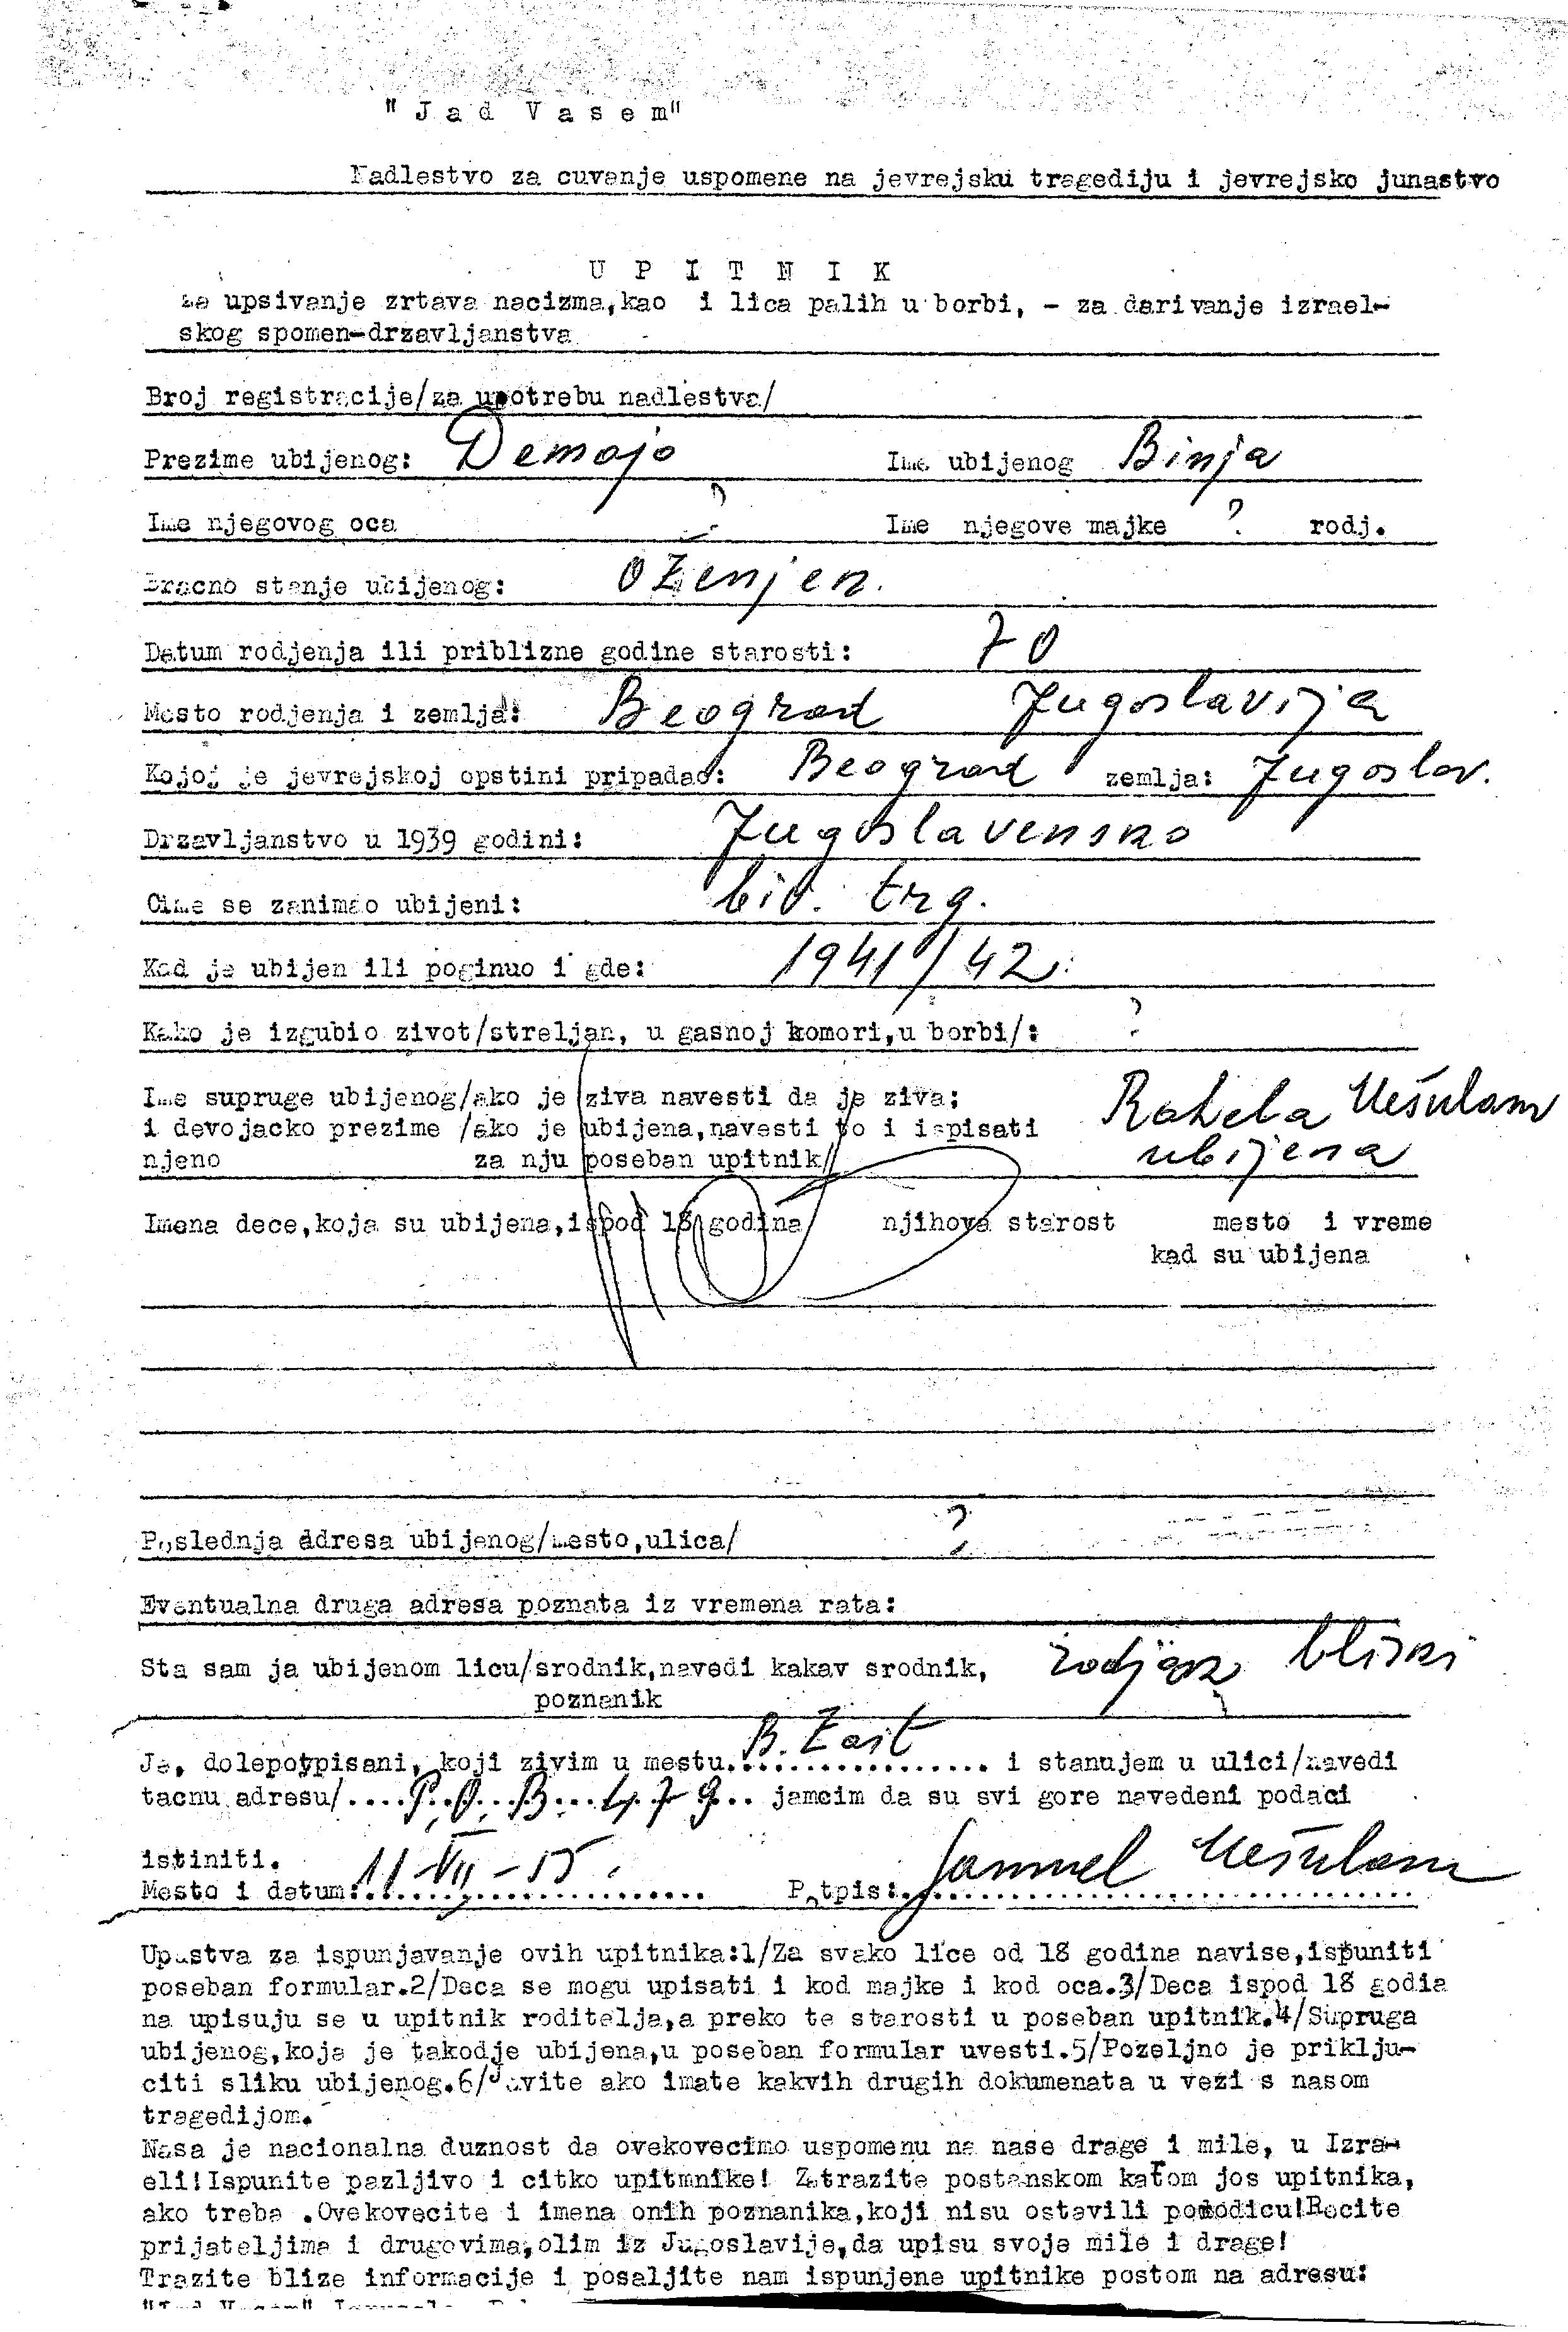 "Jad Vasem"
Nadlestvo za cuvanje uspomene na jevrejsku tragediju i jevrejsko junastvo
U P I T N I K
za upsivanje zrtava nacizma,kao i lica palih u borbi, - za darivanje izrael-
skog spomen-drzavljanstva
Broj registracije/za upotrebu nadlestva/
Prezime ubijenog: Demajo Ime ubijenog Binja
Ime njegovog oca ? Ime njegove majke ? rodj.
Bracno stanje ubijenog: Oženjen.
Datum rodjenja ili priblizne godine starosti: 70
Mesto rodjenja i zemlja: Beograd Jugoslavija
Kojoj je jevrejskoj opstini pripadao: Beograd zemlja: Jugoslav.
Drzavljanstvo u 1939 godini: Jugoslavensko
Cime se zanimao ubijeni: biv. trg.
Kad je ubijen ili poginuo i gde: 1941/42.
Kako je izgubio zivot/streljan, u gasnoj komori,u borbi/: ?
Ime supruge ubijenog/ako je ziva navesti da je ziva; Rahela Mešulam
i devojacko prezime /ako je ubijena,navesti to i ispisati ubijena
njeno za nju poseban upitnik/
Imena dece,koja su ubijena,ispod 18 godina/ njihova starost mesto i vreme
kad su ubijena
Poslednja adresa ubijenog/mesto,ulica/ ?
Eventualna druga adresa poznata iz vremena rata:
Sta sam ja ubijenom licu/srodnik,navedi kakav srodnik, rodjak bliski
poznanik
Ja, dolepotpisani, koji zivim u mestu..B. Zait.. i stanujem u ulici/navedi
tacnu adresu/....P.O.B. 479... jamcim da su svi gore navedeni podaci
istiniti.
Mesto i datum: 11 VII - 55. Potpis: Samuel Mešulam
Upustva za ispunjavanje ovih upitnika:1/Za svako lice od 18 godina navise,ispuniti
poseban formular.2/Deca se mogu upisati i kod majke i kod oca.3/Deca ispod 18 godia
na upisuju se u upitnik roditelja,a preko te starosti u poseban upitnik.4/Supruga
ubijenog,koja je takodje ubijena,u poseban formular uvesti.5/Pozeljno je priklju-
citi sliku ubijenog.6/Javite ako imate kakvih drugih dokumenata u vezi s nasom
tragedijom.
Nasa je nacionalna duznost da ovekovecimo uspomenu na nase drage i mile, u Izra-
eli!Ispunite pazljivo i citko upitmnike! Zatrazite postanskom katom jos upitnika,
ako treba .Ovekovecite i imena onih poznanika,koji nisu ostavili porodicu!Recite
prijateljima i drugovima,olim iz Jugoslavije,da upisu svoje mile i drage!
Trazite blize informacije i posaljite nam ispunjene upitnike postom na adresu: